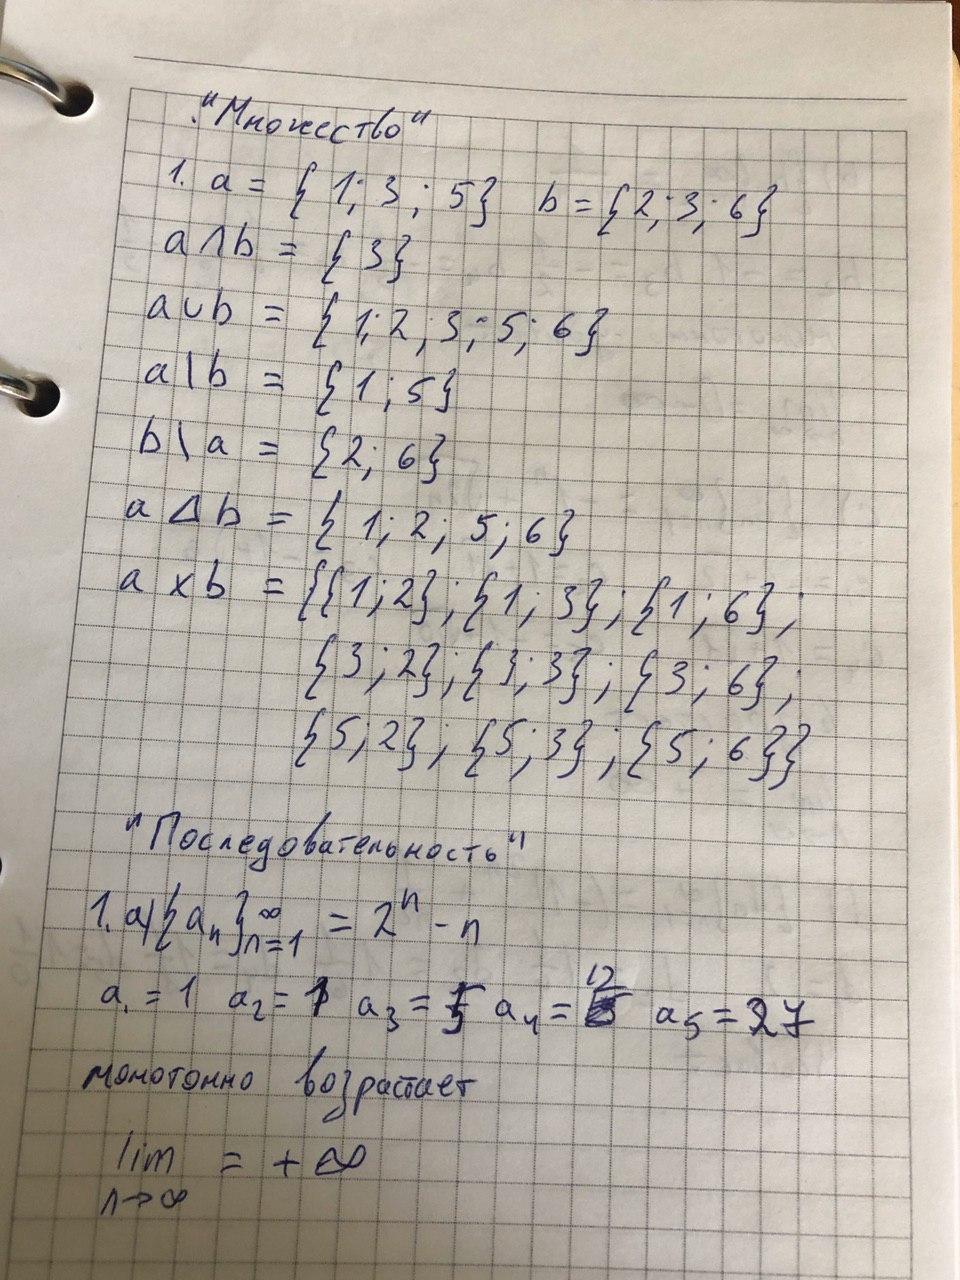 "Множество"
1. a = {1; 3; 5} b = {2; 3; 6}
a ∩ b = {3}
a ∪ b = {1; 2; 3; 5; 6}
a | b = {1; 5}
b \ a = {2; 6}
a Δ b = {1; 2; 5; 6}
a x b = {{1; 2}; {1; 3}; {1; 6};
{3; 2}; {3; 3}; {3; 6};
{5; 2}; {5; 3}; {5; 6}}
"Последовательность"
1. a) {aₙ}ₙ₌₁^∞ = 2ⁿ - n
a₁ = 1 a₂ = 1 a₃ = 5 a₄ = 12 a₅ = 27
монотонно возрастает
lim = + ∞
n→∞